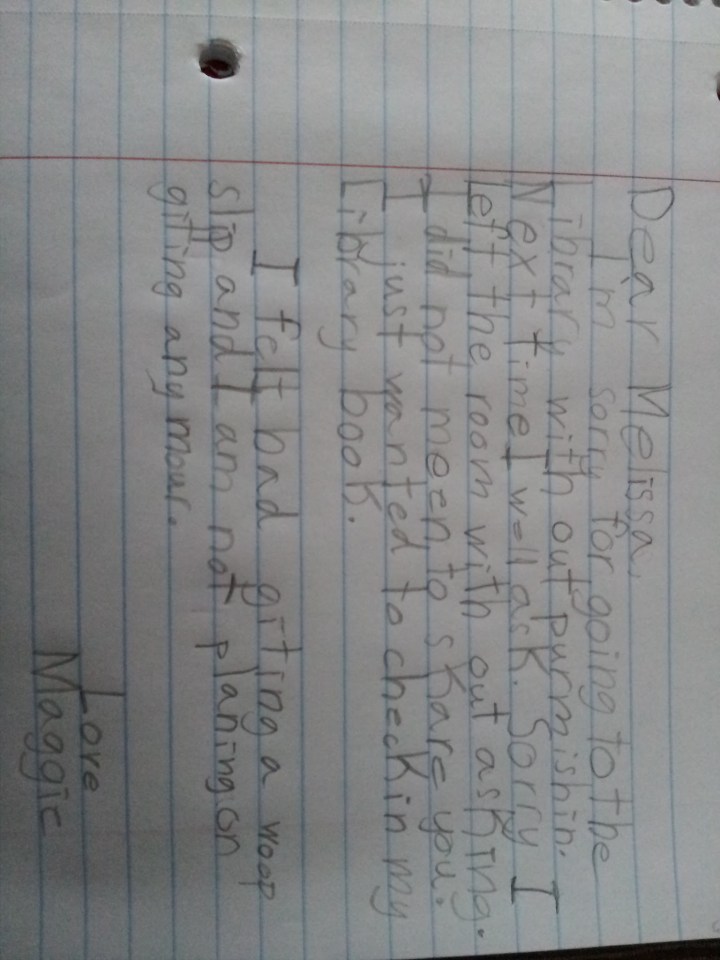 Dear Melissa,
I'm sorry for going to the
Library with out purmishin.
Next time I well ask. Sorry I
left the room with out asking.
I did not meen to skare you.
I just wanted to check in my
Library book.
I felt bad giting a woop
slip and I am not planing on
giting any mour.
Love
Maggie